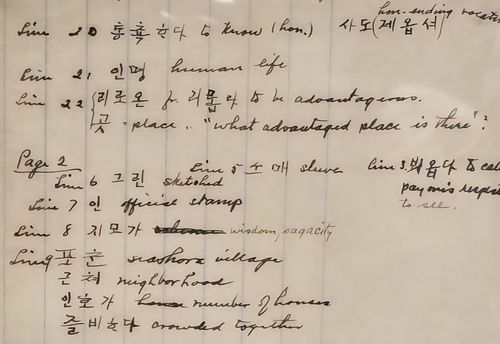 hon-ending vocati
Line 20 통촉한다 to know (hon.) 사도(제옵셔)
Line 21 인명 human life
Line 22 리로온 fr. 리롭다 to be advantageous.
곳 - place .. "what advantaged place is there"?
Page 2 Line 5 소매 sleeve Line 3. 뵈옵다 to cal
Line 6 그린 sketched pay one's respe
Line 7 인 official stamp to see.
Line 8 지모가 wisdom, sagacity
Line 9 포촌 seashore village
근쳐 neighborhood
인호가 number of houses
즐비한다 crowded together